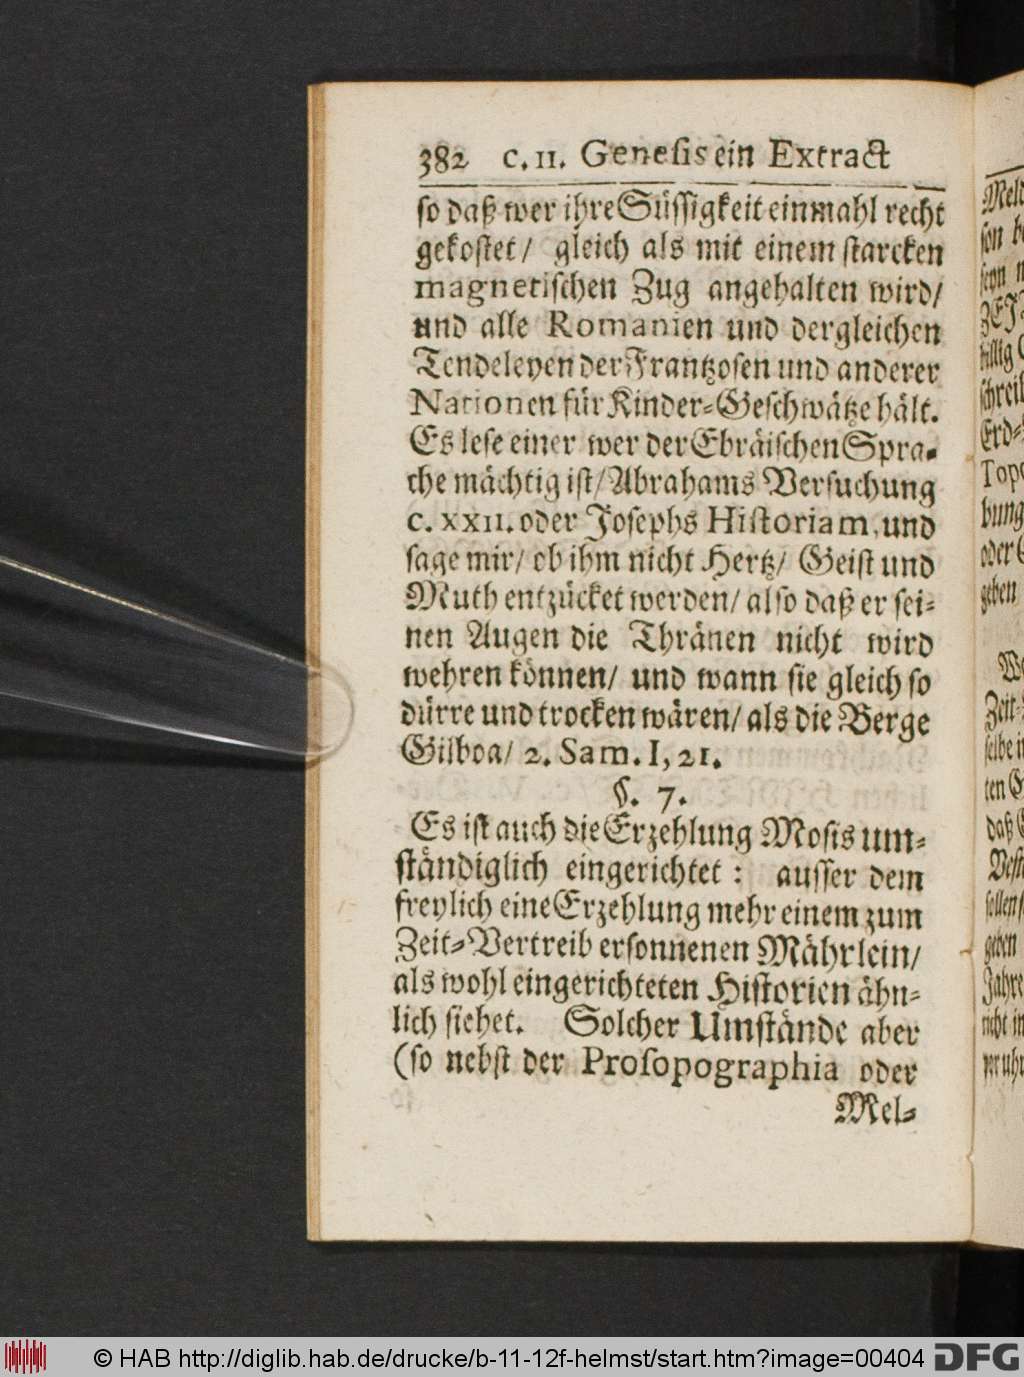 382 c. 11. Genesis ein Extract
so daß wer ihre Süssigkeit einmahl recht
gekostet/ gleich als mit einem starcken
magnetischen Zug angehalten wird/
und alle Romanien und dergleichen
Tendeleyen der Frantzosen und anderer
Nationen für Kinder-Geschwätze hält.
Es lese einer wer der Ebräischen Spra-
che mächtig ist/ Abrahams Versuchung
c. XXII. oder Josephs Historiam, und
sage mir/ ob ihm nicht Hertz/ Geist und
Muth entzücket werden/ also daß er sei-
nen Augen die Thränen nicht wird
wehren können/ und wann sie gleich so
dürre und trocken wären/ als die Berge
Gilboa/ 2. Sam. I, 21.
§. 7.
Es ist auch die Erzehlung Mosis um-
ständiglich eingerichtet: ausser dem
freylich eine Erzehlung mehr einem zum
Zeit-Vertreib ersonnenen Mährlein/
als wohl eingerichteten Historien ähn-
lich siehet. Solcher Umstände aber
(so nebst der Prosopographia oder
Mel-
© HAB http://diglib.hab.de/drucke/b-11-12f-helmst/start.htm?image=00404 DFG